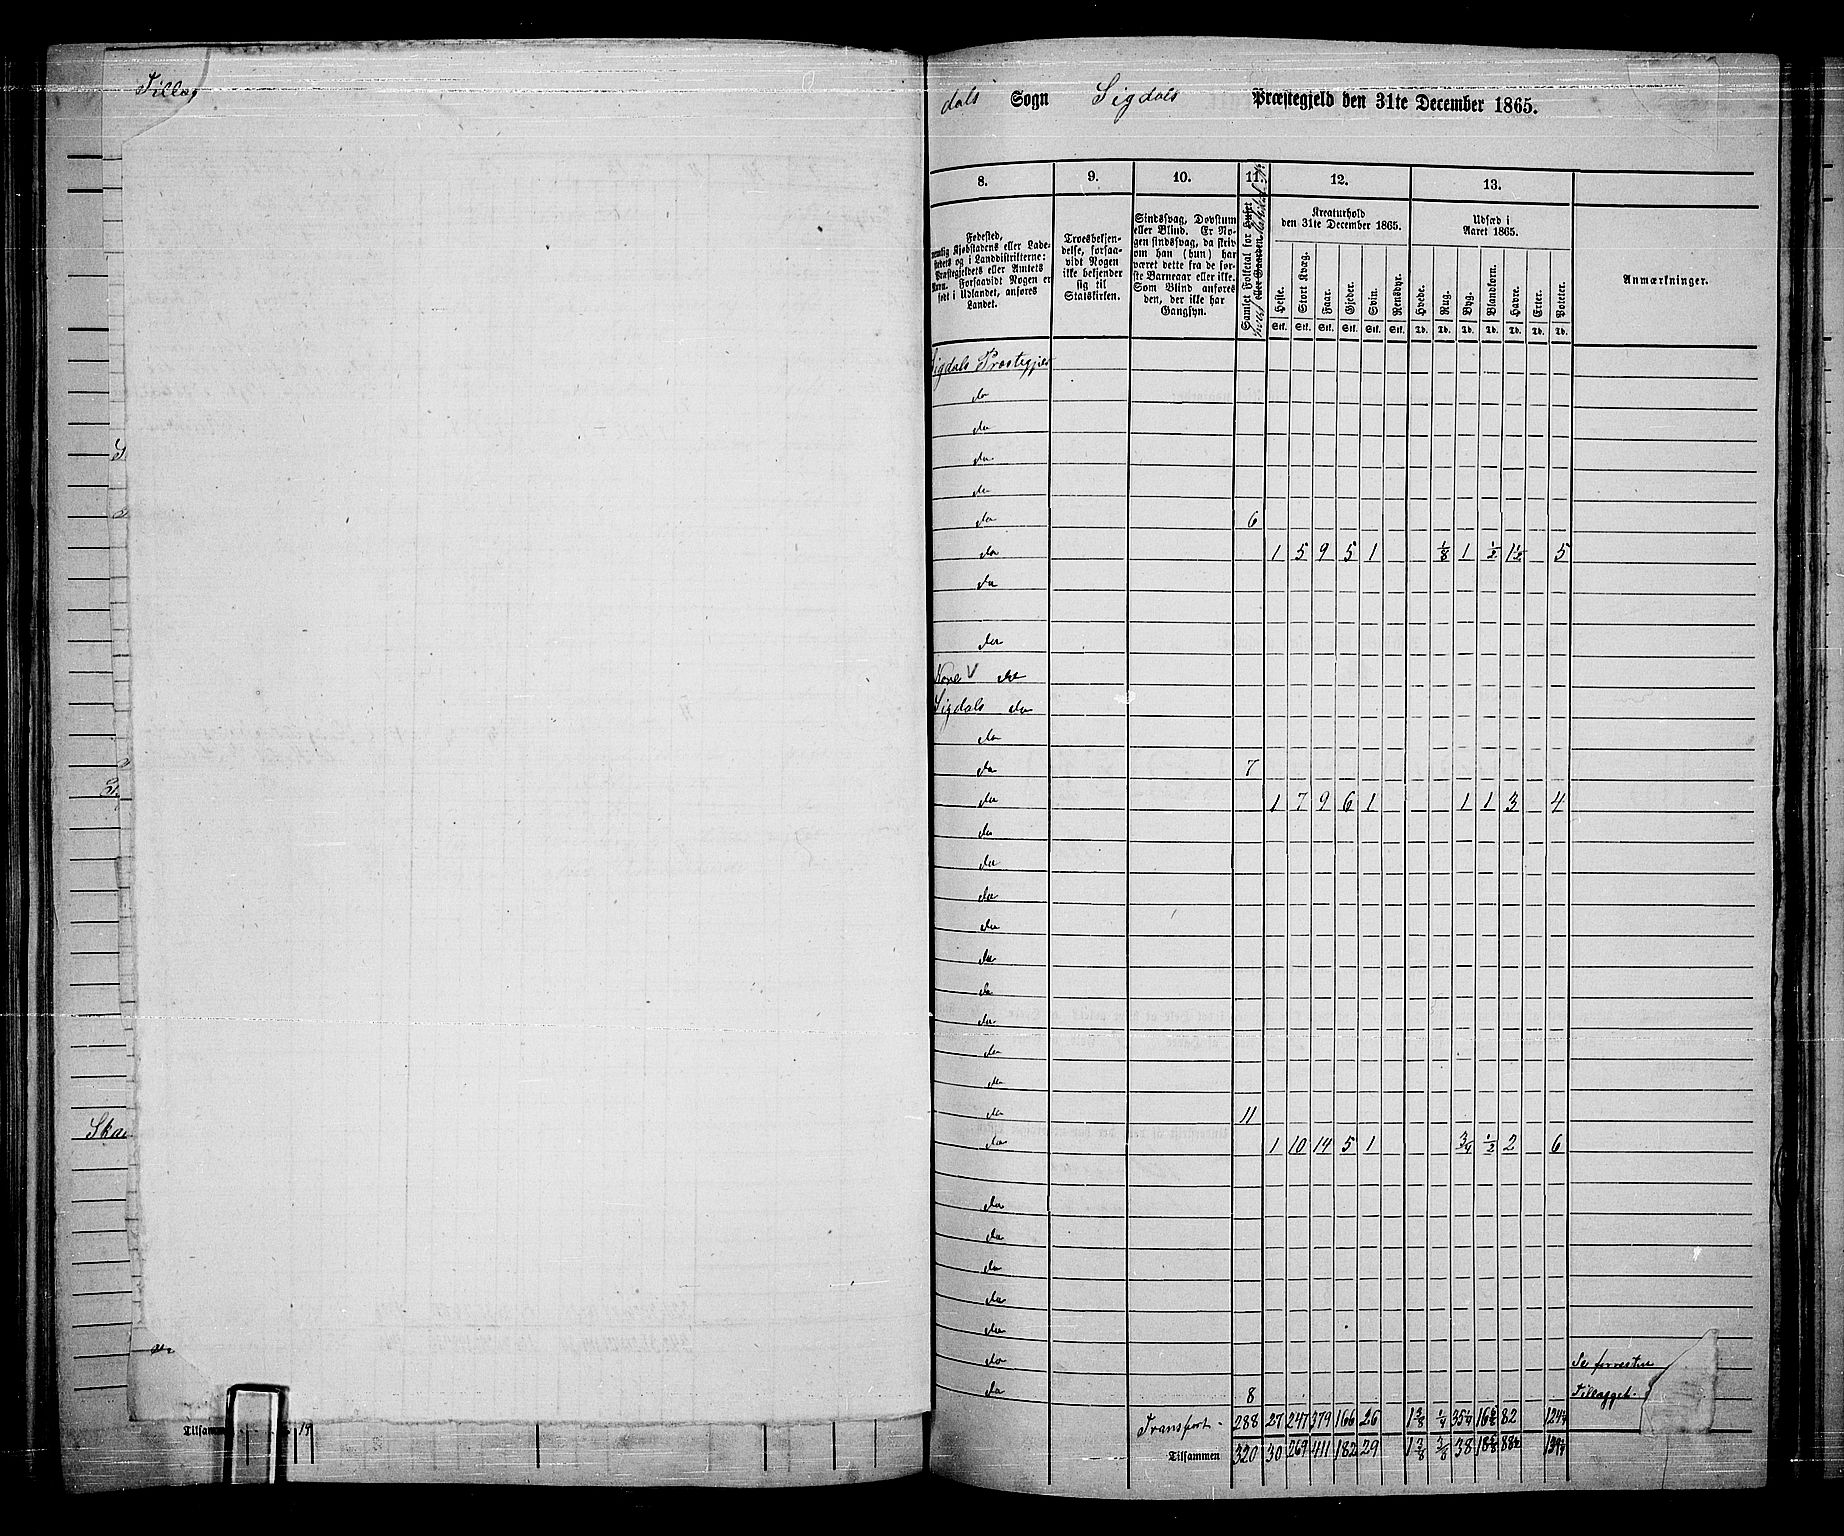 Tillæg
Skau
Tilsammen 19
dals Sogn Sigdals Præstegjeld den 31te December 1865.
8. 9. 10. 11. 12. 13.
Fødested,
nemlig Kjøbstadens eller Lade-
stedets og i Landdistrikterne:
Præstegjeldets eller Amtets
Navn. Forsaavidt Nogen er
født i Udlandet, anføres
Landet.
Troesbekjen-
delse, forsaa-
vidt Nogen
ikke bekjender
sig til
Statskirken.
Sindssvag, Døvstum
eller Blind. Er No-
gen sindssvag, da skriv
om han (hun) har
været dette fra de før-
ste Barneaar eller ikke.
Som Blind anføres
den, der ikke har
Gangsyn.
Samlet Folketal for Huset
eller Gaarden
Kreaturhold
den 31te December 1865.
Heste. Stort Kvæg. Faar. Gjeder. Svin. Rensdyr.
Stk. Stk. Stk. Stk. Stk. Stk.
Udsæd i
Aaret 1865.
Hvede. Rug. Byg. Blandkorn. Havre. Erter. Poteter.
Td. Td. Td. Td. Td. Td. Td.
Anmærkninger.
Sigdals Præstegjeld
do
do
do
do
do 6
do 1 5 9 5 1 1/8 1 1/2 1 1/2 5
do
do
Nore V do
Sigdals do
do
do 7
do 1 7 9 6 1 1 1 3 4
do
do
do
do
do
do
do
do
do
do 11
do 1 10 14 5 1 3/4 1/2 2 6
do
do
do
do
do
do Se forresten
do 8 Tillægget.
Transport 288 27 247 379 166 26 1 3/8 1/4 35 1/4 82
Tilsammen 320 30 269 411 182 29 1 3/8 3/8 38 18 5/8 88 1/2